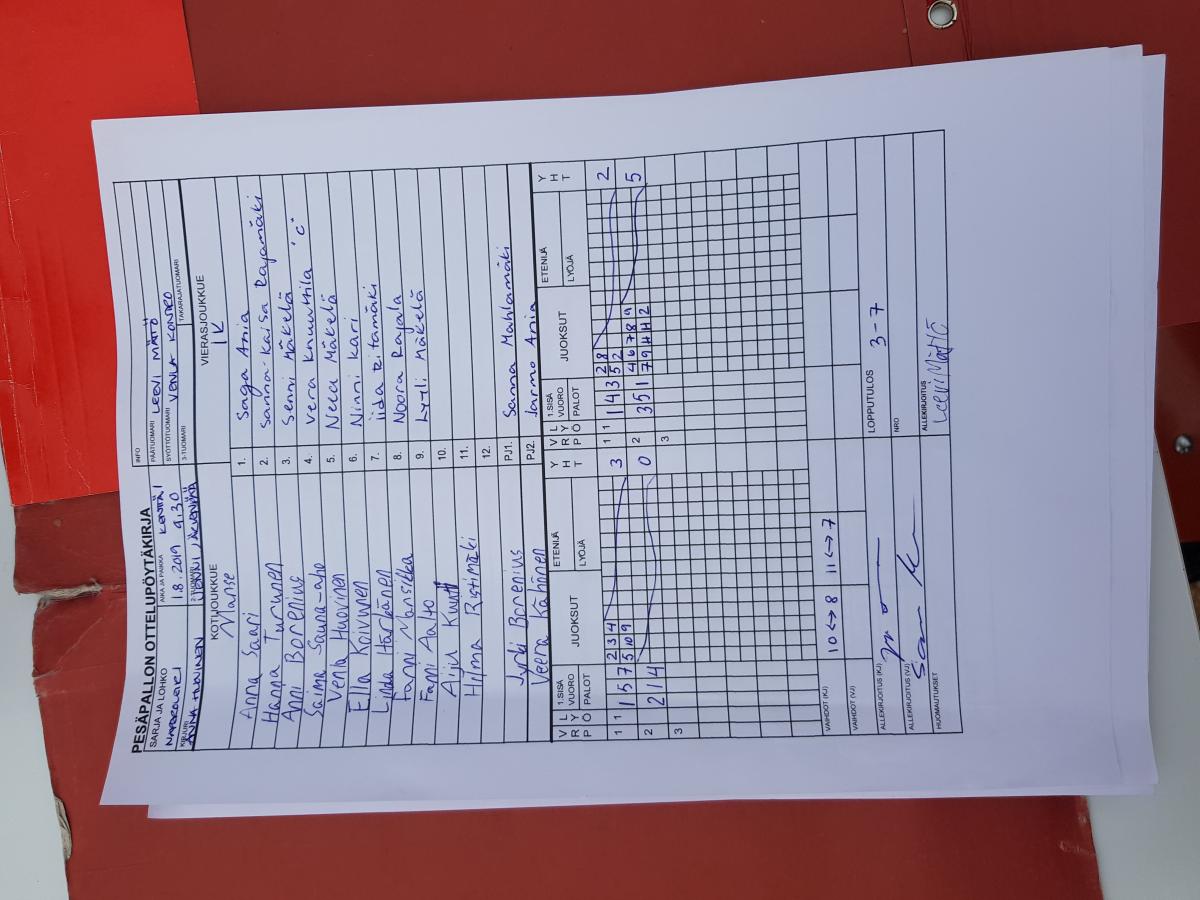 PESÄPALLON OTTELUPÖYTÄKIRJA
SARJA JA LOHKO
AIKA JA PAIKKA KENTTÄ 1
1.8.2019 9.30
INFO
PÄÄTUOMARI LEEVI MÄTÖ
SYÖTTÖTUOMARI VENLA KONTRO
KIRJURI
2-TUOMARI
3-TUOMARI
TAKARAJATUOMARI
KOTIJOUKKUE
Manse
VIERASJOUKKUE
IK
Anna Saari 1. Saga Ania
Hanna Turunen 2. Sanna-Kaisa Rajamäki
Anni Borenius 3. Senni Mäkelä
Saima Sauna-aho 4. Vera Knuuttila "C"
Venla Huovinen 5. Neea Mäkelä
Ella Koivunen 6. Ninni Kari
Linda Härkänen 7. iida Ritamäki
Fanni Mansikka 8. Noora Rajala
Fanni Aalto 9. Lyyli Mäkelä
Aiju Kuutti 10.
Hilma Ristimäki 11.
12.
Jyrki Borenius PJ1. Sanna Mahlamäki
Veera Kähönen PJ2. Jarmo Ania
V R P L Y Ö 1.SISÄ VUORO PALOT JUOKSUT ETENIJÄ LYÖJÄ Y H T
V R P L Y Ö 1.SISÄ VUORO PALOT JUOKSUT ETENIJÄ LYÖJÄ Y H T
1 1 1 5 7 2 3 4 3
5 10 9
1 1 1 4 3 2 8 2
5 2
2 2 1 4 0
2 3 5 1 4 6 7 8 9 5
7 9 11 12 2
3
3
VAIHDOT (KJ) 10 <-> 8 11 <-> 7
VAIHDOT (VJ)
ALLEKIRJOITUS (KJ)
LOPPUTULOS 3-7
ALLEKIRJOITUS (VJ)
NRO
HUOMAUTUKSET
ALLEKIRJOITUS
Leevi Mättö